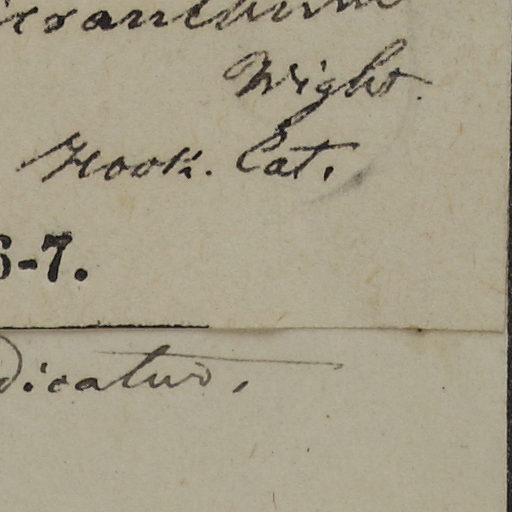 Wight.
Hook. Cat.
6-7.
dicatus.